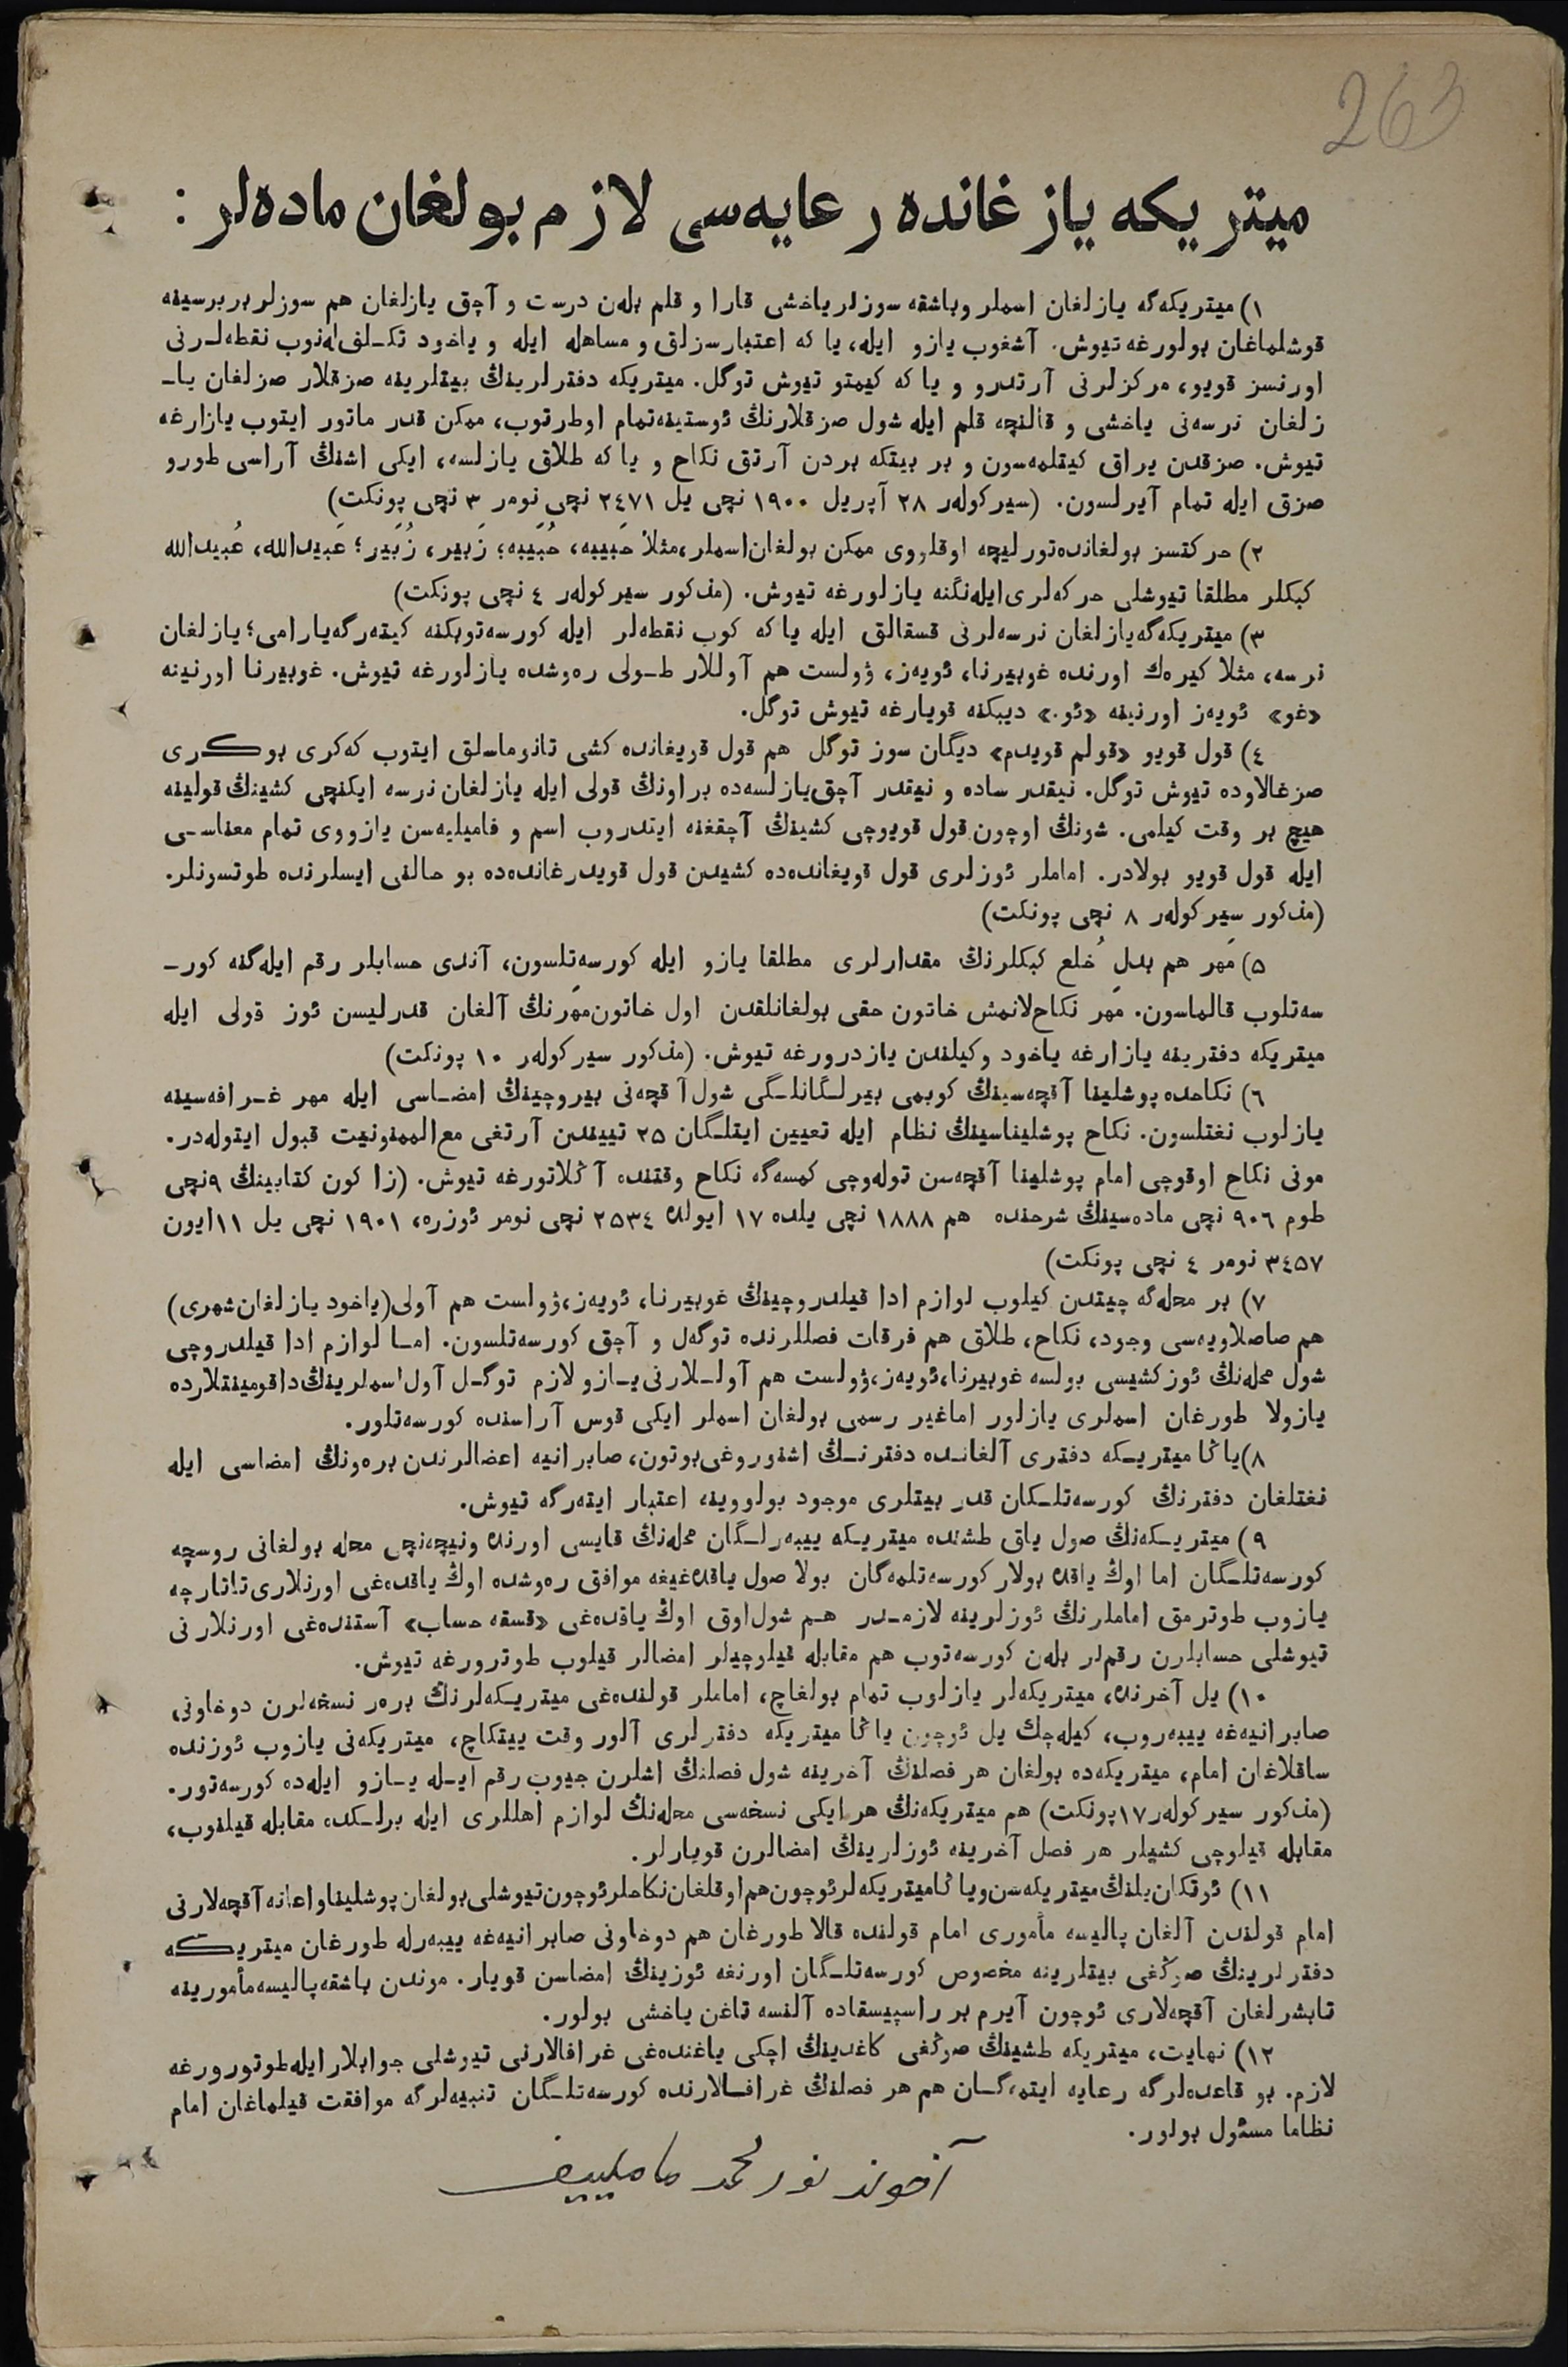 263
ميتريكه يازغانده رعايه‌سى لازم بولغان ماده‌لر :
١) ميتريكه‌گه يازلغان اسملر وباشقه سوزلر ياخشى قارا و قلم بله‌ن درست و آچق يازلغان هم سوزلر بربرسينه
قوشلماغان بولورغه تيوش. آشغوب يازو ايله، يا كه اعتبارسزلق و مساهله ايله و ياخود تكـلف له‌نوب نقطه‌لـرنى
اورنسز قويو، مركزلرنى آرتدرو و يا كه كيمتو تيوش توگل. ميتريكه دفترلرينڭ بيتلرينه صزقلار صزلغان يا‍ـ
زلغان نرسه‌نى ياخشى و قالنچه قلم ايله شول صزقلارنڭ ئوستينه تمام اوطرتوب، ممكن قدر ماتور ايتوب يازارغه
تيوش. صزقدن يراق كيتلمه‌سون و بر بيتكه بردن آرتق نكاح و يا كه طلاق يازلسه، ايكى اشنڭ آراسى طورو
صزق ايله تمام آيرلسون. (سيركولەر ٢٨ آپريل ١٩٠٠ نچى يل ٢٤٧١ نچى نومر ٣ نچى پونكت)
٢) حركتسز بولغانده تورليچه اوقلووى ممكن بولغان اسملر، مثلا حَبيبه، حُبَيبه؛ زَبير، زُبَير؛ عَبيدالله، عُبيدالله
كبكلر مطلقا تيوشلى حركه‌لرى ايله‌نگنه يازلورغه تيوش. (مذكور سيركولەر ٤ نچى پونكت)
٣) ميتريكه‌گه يازلغان نرسه‌لرنى قسقالق ايله يا كه كوب نقطه‌لر ايله كورسه‌توبكنه كيته‌رگه يارامى؛ يازلغان
نرسه، مثلا كيره‌ك اورنده غوبيرنا، ئويه‌ز، ۋولست هم آوللار طـولى ره‌وشده يازلورغه تيوش. غوبيرنا اورنينه
«غو» ئويه‌ز اورنينه «ئو.» ديبكنه قويارغه تيوش توگل.
٤) قول قويو «قولم قويدم» ديگان سوز توگل هم قول قويغانده كشى تانوماسلق ايتوب كه‌كرى بوكرى
صزغالاوده تيوش توگل. نيقدر ساده و نيقدر آچق يازلسه‌ده براونڭ قولى ايله يازلغان نرسه ايكنچى كشينڭ قولينه
هيچ بر وقت كيلمى. شونڭ اوچون قول قويوچى كشينڭ آچقغنه ايتدروب اسم و فاميليه‌سن يازووى تمام معناسـى
ايله قول قويو بولادر. اماملر ئوزلرى قول قويغانده‌ده كشيدن قول قويدرغانده‌ده بو حالنى ايسلرنده طوتسونلر.
(مذكور سيركولەر ٨ نچى پونكت)
٥) مَهر هم بدلِ خُلع كبكلرنڭ مقدارلرى مطلقا يازو ايله كورسه‌تلسون، آندى حسابلر رقم ايله‌گنه كور‍ـ
سه‌تلوب قالماسون. مَهر نكاح‌لانمش خاتون حقى بولغانلقدن اول خاتون مَهرنڭ آلغان قدرليسن ئوز قولى ايله
ميتريكه دفترينه يازارغه ياخود وكيلندن يازدرورغه تيوش. (مذكور سيركولەر ١٠ پونكت)
٦) نكاحده پوشلينا آقچه‌سينڭ كوبمى بيرلـگانلـگى شول آقچه‌نى بيروچينڭ امضـاسى ايله مهر غـرافه‌سينه
يازلوب نغتلسون. نكاح پوشليناسينڭ نظام ايله تعيين ايتلـگان ٢٥ تييندن آرتغى مع الممنونيت قبول ايتوله‌در.
مونى نكاح اوقوچى امام پوشلينا آقچه‌سن توله‌وچى كمسه‌گه نكاح وقتنده آڭلاتورغه تيوش. (زاكون كتابينڭ ٩نچى
طوم ٩٠٦ نچى ماده‌سينڭ شرحنده هم ١٨٨٨ نچى يلده ١٧ ايولده ٢٥٣٤ نچى نومر ئوزره، ١٩٠١ نچى يل ١١ ايون
٣٤٥٧ نومر ٤ نچى پونكت)
٧) بر محله‌گه چيتدن كيلوب لوازم ادا قيلدروچينڭ غوبيرنا، ئويه‌ز، ۋولست هم آولى (ياخود يازلغان شهرى)
هم صاصلاويه‌سى وجود، نكاح، طلاق هم فرقات فصللرنده توگه‌ل و آچق كورسه‌تلسون. امـا لوازم ادا قيلدروچى
شول محله‌نڭ ئوز كشيسى بولسه غوبيرنا، ئويه‌ز، ۋولست هم آولـلارنى يـازو لازم توگـل آول اسملرينڭ داقومينتلارده
يازولا طورغان اسملرى يازلور اماغير رسمى بولغان اسملر ايكى قوس آراسنده كورسه‌تلور.
٨) ياڭا ميتريـكه دفترى آلغانـده دفترنـڭ اشنوروغى بوتون، صابرانيه اعضالرندن بره‌ونڭ امضاسى ايله
نغتلغان دفترنڭ كورسه‌تلـكان قدر بيتلرى موجود بولووينه اعتبار ايته‌رگه تيوش.
٩) ميتريـكه‌نڭ صول ياق طشنده ميتريـكه ييبه‌رلـگان محله‌نڭ قايسى اورنده ونيچه‌نچى محله بولغانى روسچه
كورسه‌تلـگان اما اوڭ ياقده بولار كورسه‌تلمه‌گان بولا صول ياقده‌غيغه موافق ره‌وشده اوڭ ياقده‌غى اورنلارى تاتارچه
يازوب طوترمق اماملرنڭ ئوزلرينه لازمـدر هـم شول‌اوق اوڭ ياقده‌غى «قسقه حساب» آستنده‌غى اورنلارنى
تيوشلى حسابلرن رقملر بله‌ن كورسه‌توب هم مقابله قيلوچيلر امضالر قيلوب طوترورغه تيوش.
١٠) يل آخرنده، ميتريكه‌لر يازلوب تمام بولغاچ، اماملر قولنده‌غى ميتريـكه‌لرنڭ بره‌ر نسخه‌لرن دوخاونى
صابرانيه‌غه ييبه‌روب، كيله‌چك يل ئوچون ياڭا ميتريكه دفترلرى آلور وقت ييتكاچ، ميتريكه‌نى يازوب ئوزنده
ساقلاغان امام، ميتريكه‌ده بولغان هر فصلنڭ آخرينه شول فصلنڭ اشلرن جيوب رقم ايـله يـازو ايله‌ده كورسه‌تور.
(مذكور سيركولەر ١٧ پونكت) هم ميتريكه‌نڭ هر ايكى نسخه‌سى محله‌نڭ لوازم اهللرى ايله برلـكده مقابله قيلنوب،
مقابله قيلوچى كشيلر هر فصل آخرينه ئوزلرينڭ امضالرن قويارلر.
١١) ئوتكان يلنڭ ميتريكه‌سن وياڭا ميتريكه‌لر ئوچون هم اوقلغان نكاحلر ئوچون تيوشلى بولغان پوشلينا واعانه آقچه‌لارنى
امام قولندن آلغان پاليسه مأمورى امام قولنده قالا طورغان هم دوخاونى صابرانيه‌غه ييبه‌رله طورغان ميتريـكه
دفترلرينڭ صوڭغى بيتلرينه مخصوص كورسه‌تلـگان اورنغه ئوزينڭ امضاسن قويار. موندن باشقه پاليسه مأمورينه
تابشرلغان آقچه‌لارى ئوچون آيرم بر راسپيسقاده آلنسه تاغن ياخشى بولور.
١٢) نهايت، ميتريكه طشينڭ صوڭغى كاغدينڭ اچكى ياغنده‌غى غرافالارنى تيوشلى جوابلار ايله طوتورورغه
لازم. بو قاعده‌لرگه رعايه ايتمه‌گـان هم هر فصلنڭ غرافـالارنده كورسه‌تلـگان تنبيه‌لرگه موافقت قيلماغان امام
نظاما مسئول بولور.
آخوند نورمحمد ماملييف